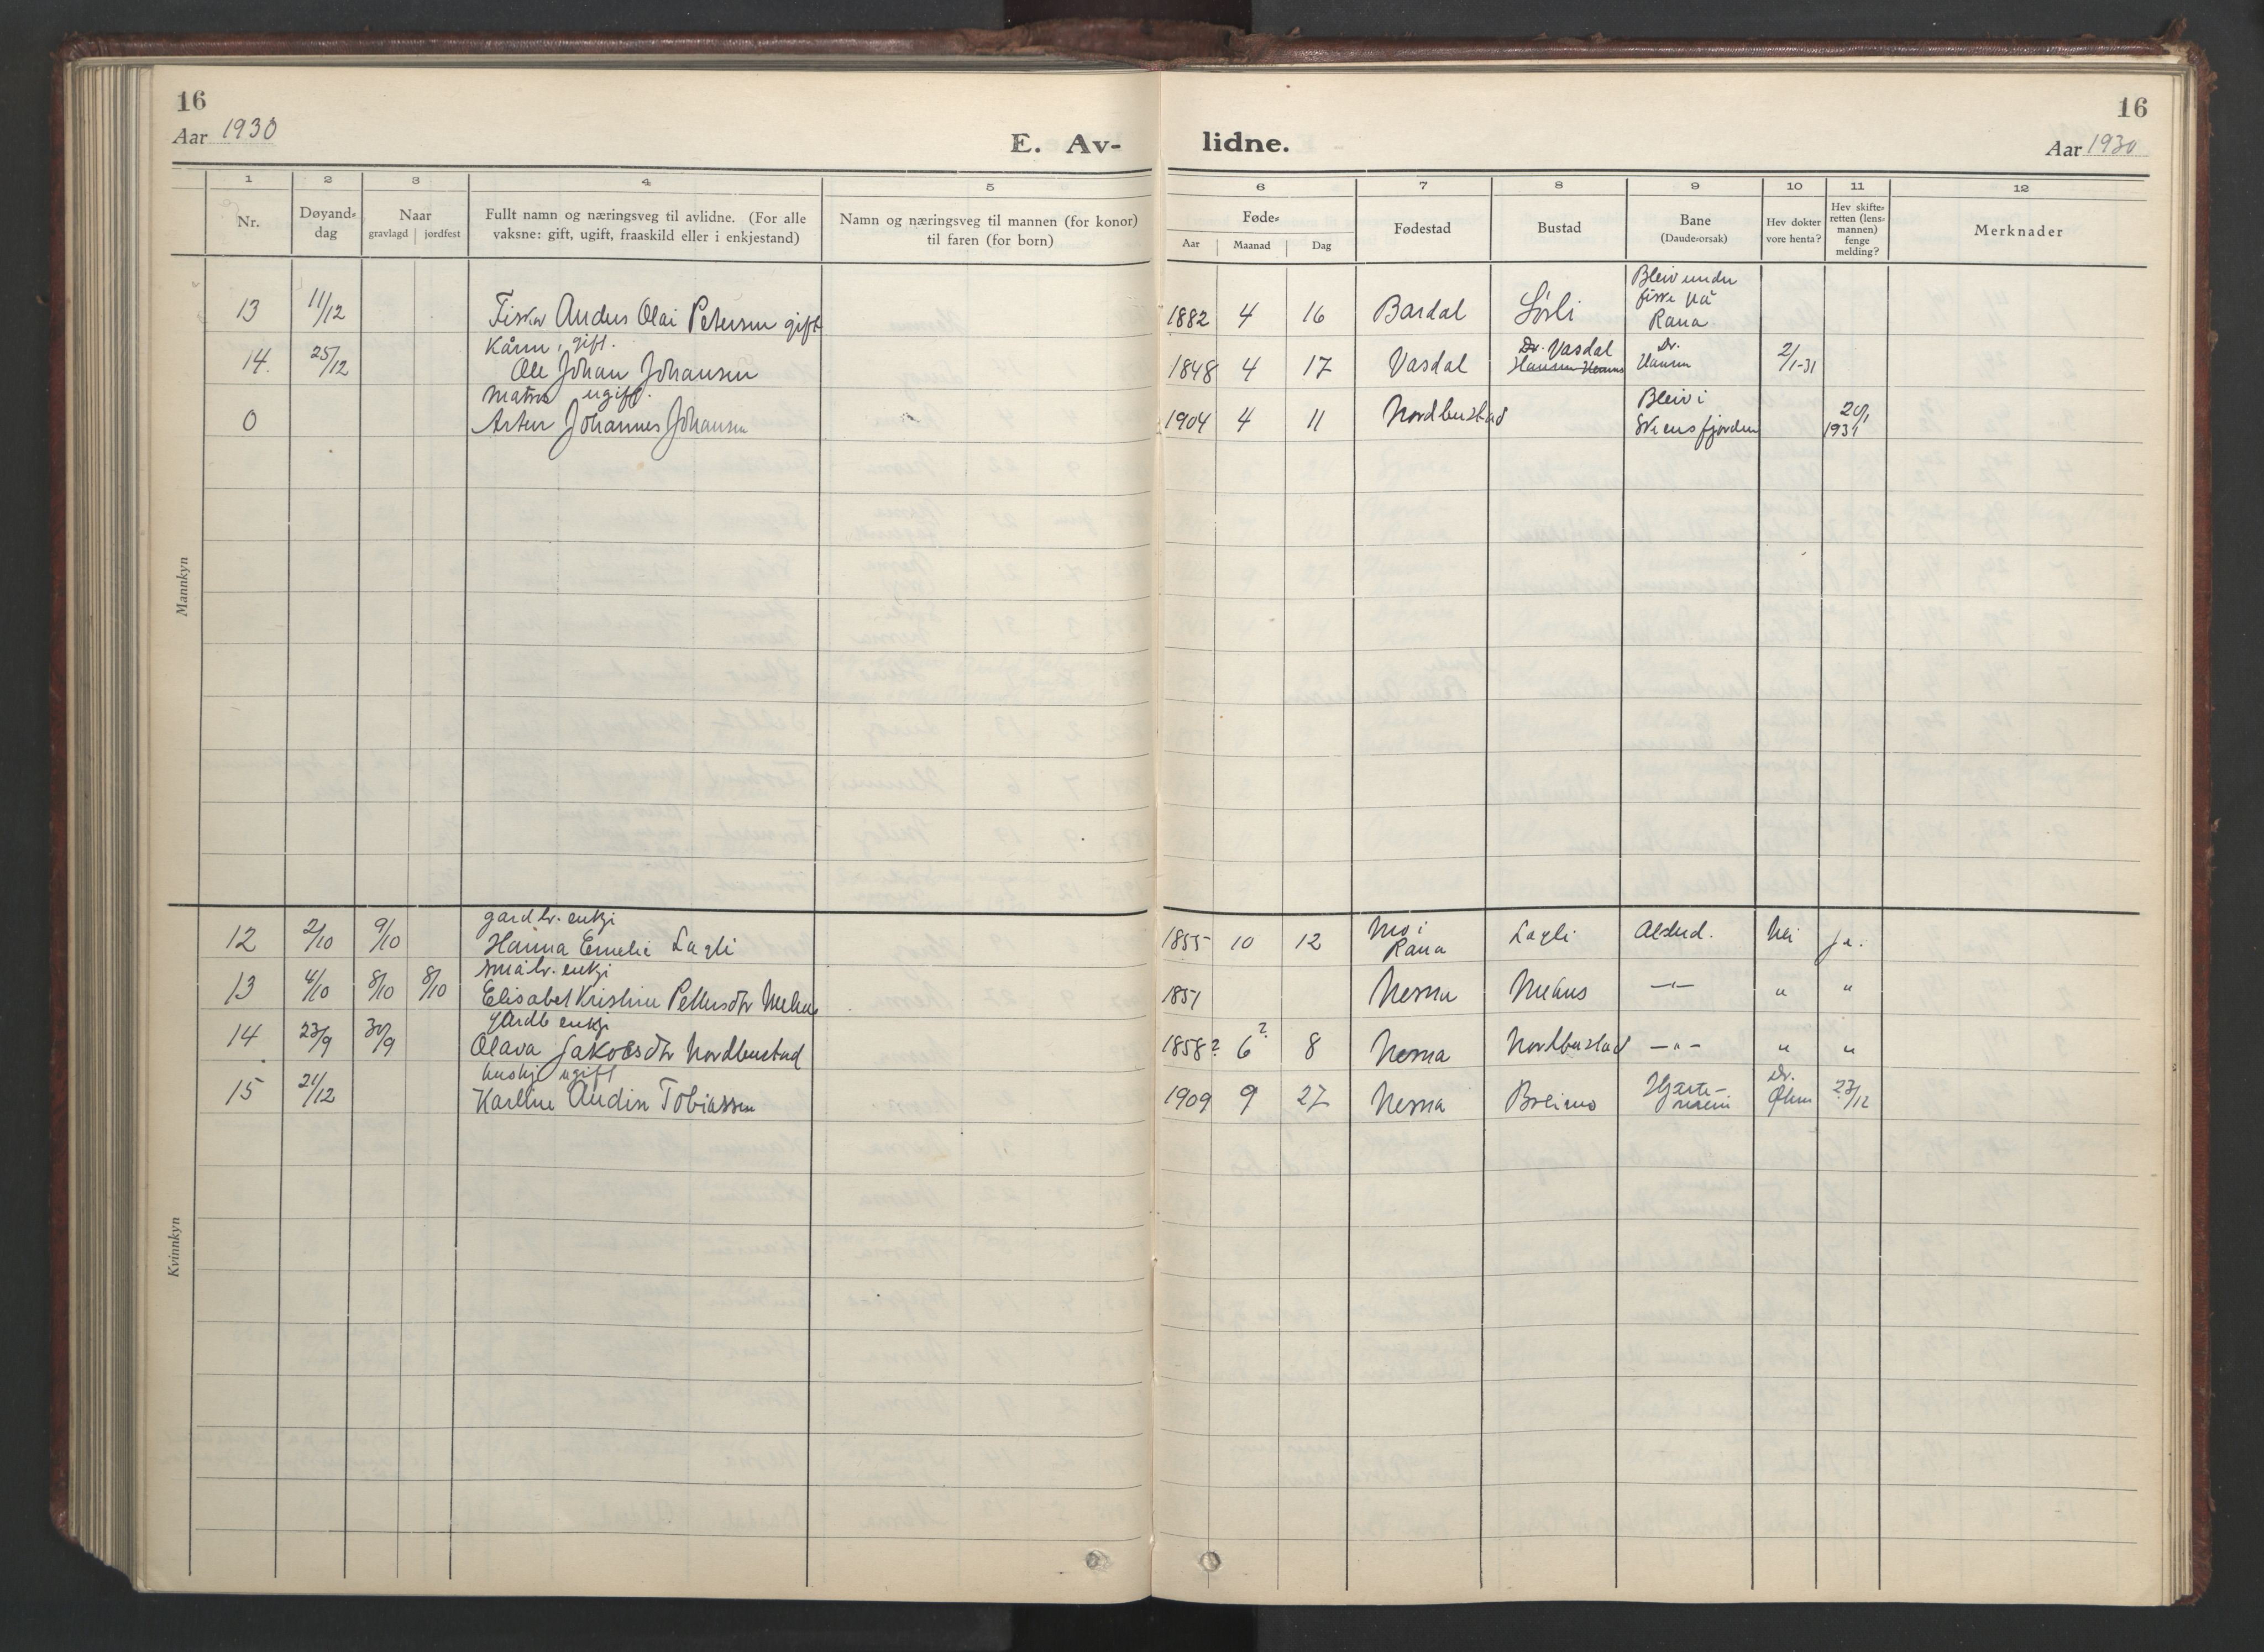 16
Aar 1930
E. Av-
lidne.
16
Aar 1930
1 2 3 4 5 6 7 8 9 10 11 12
Nr.
Døyand-
dag
Naar
gravlagd | jordfest
Fullt namn og næringsveg til avlidne. (For alle
vaksne: gift, ugift, fraaskild eller i enkjestand)
Namn og næringsveg til mannen (for konor)
til faren (for born)
Føde-
Aar Maanad Dag
Fødestad
Bustad
Bane
(Daudeorsak)
Hev dokter
vore henta?
Hev skifte-
retten (lens-
mannen)
fenge
melding?
Merknader
Mannkyn
13 11/12 Fisker Anders Olai Petersen gift 1882 4 16 Bardal Sørli Bleiv under
fiske på
Rana
14. 25/12 Kårm, gift.
Ole Johan Johansen 1848 4 17 Vasdal Vasdal Dr.
Hansen 2/1-31
0 Matros ugift.
Artur Johannes Johansen 1904 4 11 Nordbustad Bleiv i
Skiensfjorden 20/1
1931
Kvinnkyn
12 2/10 9/10 gardbr. enkje
Hanna Emelie Lagli 1855 10 12 Mo i
Rana Lagli Alderd. Nei ja.
13 4/10 8/10 8/10 småbr. enkje
Elisabet Kristine Pettersdtr 1851 Nesna —"— " "
14 23/9 30/9 gardb enkje
Olava Jakobsdtr Nordbustad 1858? 6? 8 Nesna Nordbustad —"— " "
15 21/12 hushj. ugift
Karline Andin Tobiassen 1909 9 27 Nesna Breimo Hjerte- Dr.
Øhm 23/12